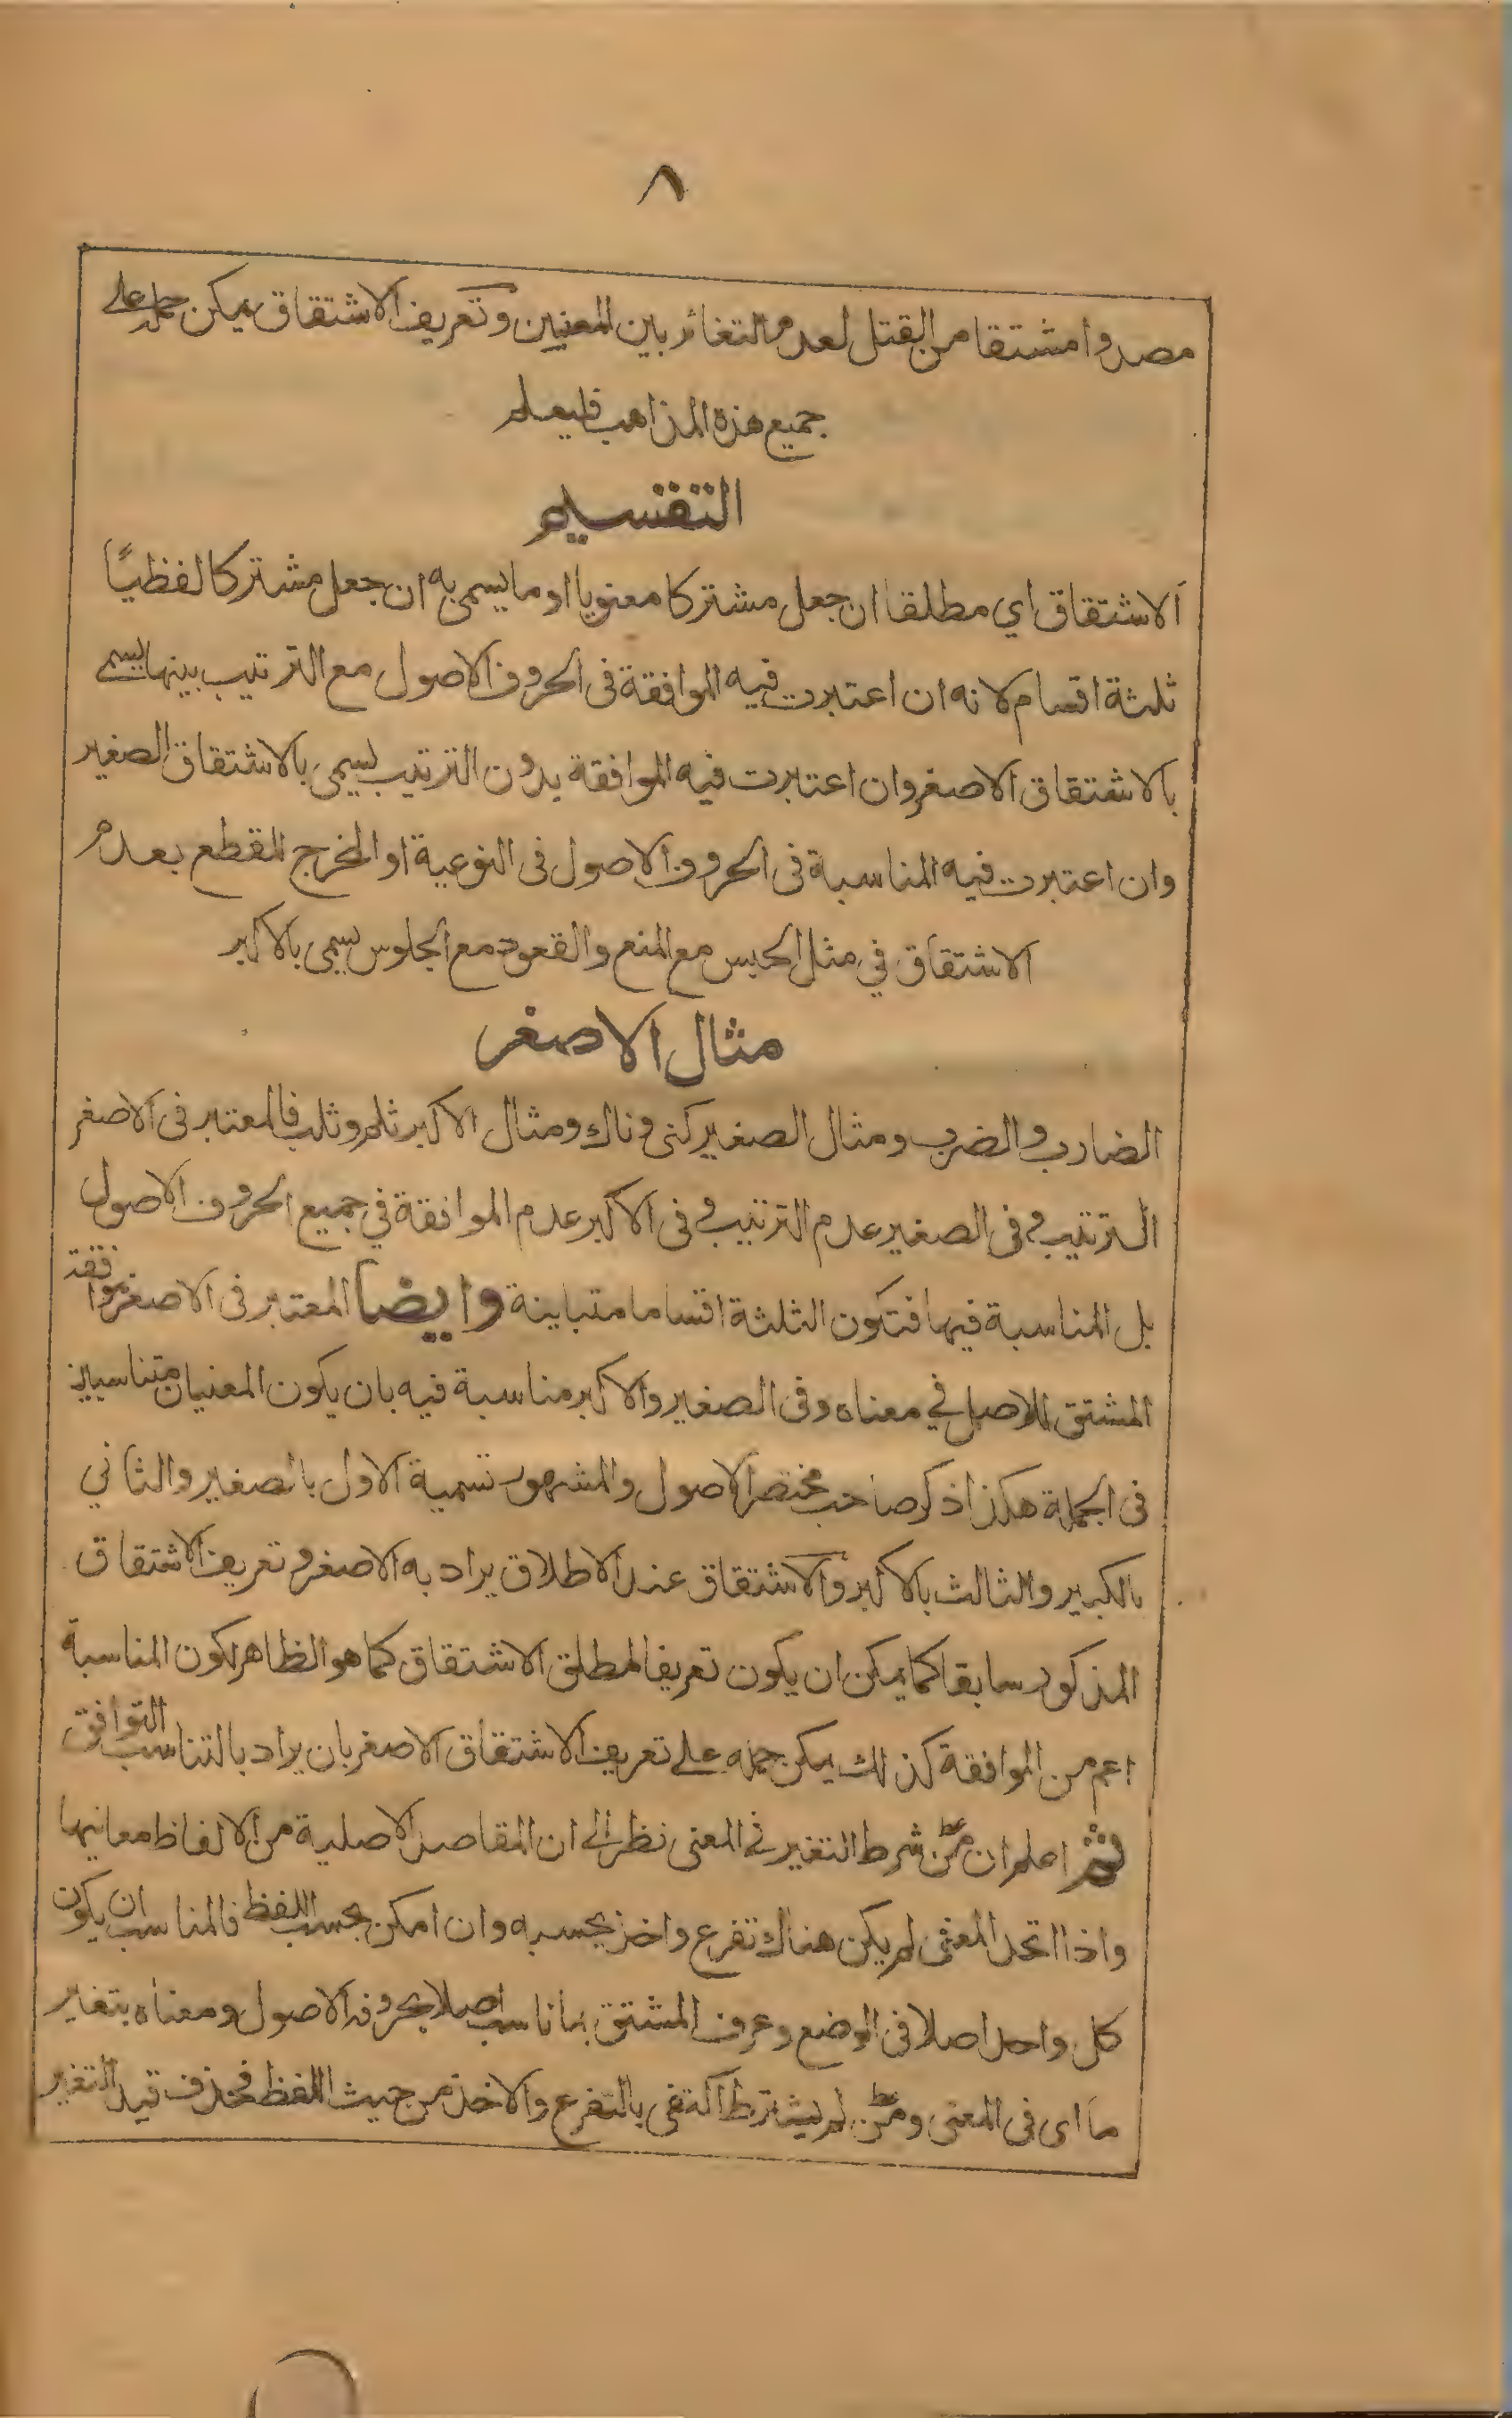 ٨
مصدرا مشتقا من القتل لعدم التغائر بين المعنيين وتعريف الاشتقاق يمكن حمله على
جميع هذه المذاهب فليعلم
التقسيم
الاشتقاق اي مطلقا ان جعل مشتركا معنويا او ما يسمى به ان جعل مشتركا لفظيًا
ثلثة اقسام لانه ان اعتبرت فيه الموافقة فى الحروف الاصول مع الترتيب بينها يسمى
بالاشتقاق الاصغر وان اعتبرت فيه الموافقة بدون الترتيب يسمى بالاشتقاق الصغير
وان اعتبرت فيه المناسبة فى الحروف الاصول فى النوعية او المخرج للقطع بعدم
الاشتقاق في مثل الحبس مع المنع والقعود مع الجلوس يسمى بالاكبر
مثال الاصغر
الضارب والضرب ومثال الصغير كنى وناك ومثال الاكبر ثلم وثلب فالمعتبر فى الاصغر
الترتيب وفى الصغير عدم الترتيب وفى الاكبر عدم الموافقة في جميع الحروف الاصول
بل المناسبة فيها فتكون الثلثة اقساما متباينة وايضا المعتبر فى الاصغر موافقة
المشتق للاصل في معناه وفى الصغير والاكبر مناسبة فيه بان يكون المعنيان متناسبين
فى الجملة هكذا ذكر صاحب مختصر الاصول والمشهور تسمية الاول بالصغير والثاني
بالكبير والثالث بالاكبر والاشتقاق عند الاطلاق يراد به الاصغر وتعريف الاشتقاق
المذكور سابقا كما يمكن ان يكون تعريفا لمطلق الاشتقاق كما هو الظاهر لكون المناسبة
اعم من الموافقة كذلك يمكن حمله على تعريف الاشتقاق الاصغر بان يراد بالتناسب التوافق
ثم اعلم ان من شرط التغير في المعنى نظر الى ان المقاصد الاصلية من الالفاظ معانيها
واذا اتحد المعنى لم يكن هناك تفرع واخذ بحسبه وان امكن بحسب اللفظ فالمناسب ان يكون
كل واحد اصلا فى الوضع وعرف المشتق بما ناسب اصلا بحروفه الاصول ومعناه بتغاير
ما اى فى المعنى ومن لم يشترط اكتفى بالتفرع والاخذ من حيث اللفظ فحذف قيد التغير